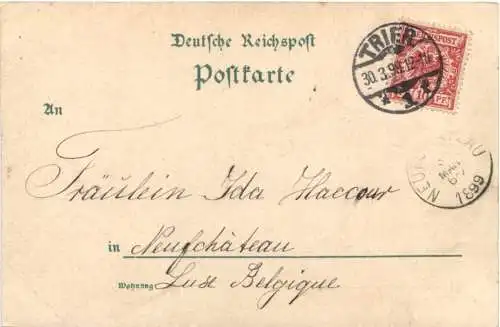 Deutsche Reichspost
Postkarte
TRIER
30.3.99.12-1N
1
REICHSPOST
10
An
1899
Fräulein Ida Haccour
in Neufchâteau
Wohnung Luxe Belgique